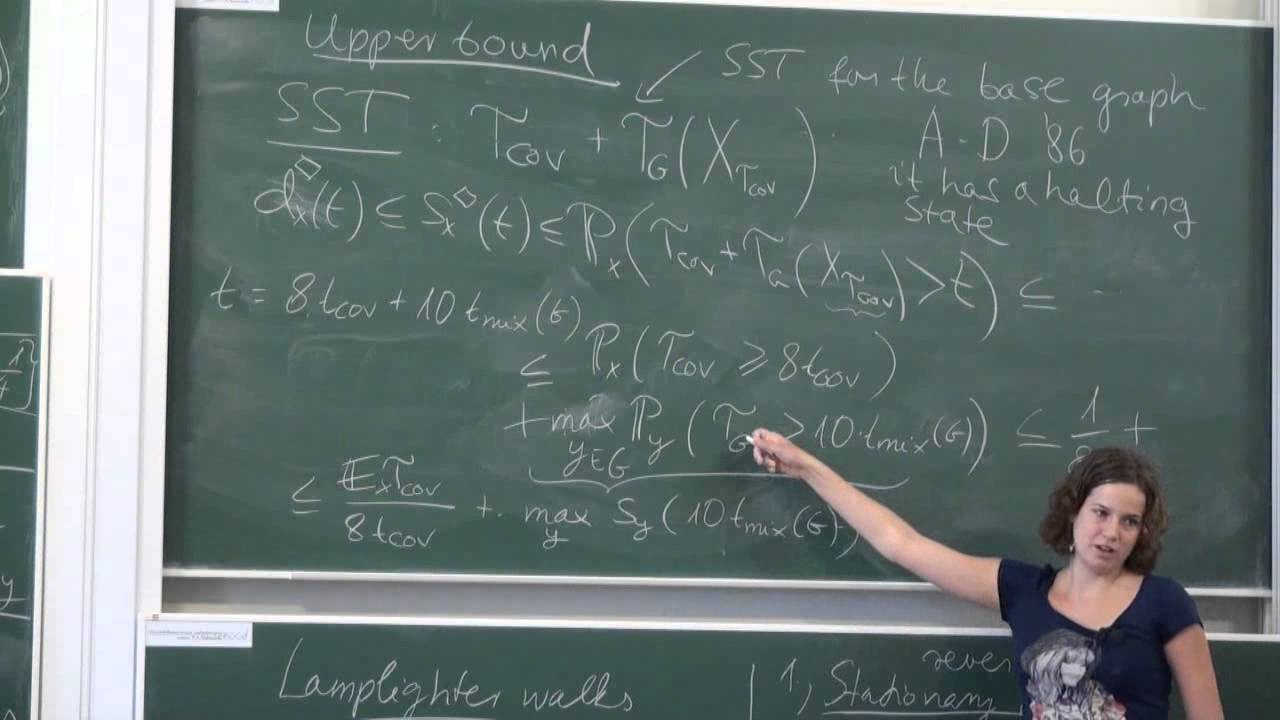 Upper bound
SST for the base graph
SST : τ_cov + τ_G(X_{τ_cov})
A-D '86
it has a halting
state
d_x^◇(t) ≤ S_x^◇(t) ≤ ℙ_x(τ_cov + τ_G(X_{τ_cov}) > t) ≤ -
t = 8 t_cov + 10 t_mix(G)
≤ ℙ_x(τ_cov ≥ 8 t_cov)
+ max_{y∈G} ℙ_y(τ_G > 10·t_mix(G)) ≤ 1/8 +
≤ 𝔼_x τ_cov / 8 t_cov + max_y S_y(10 t_mix(G))
Lamplighter walks
1, Stationary
y